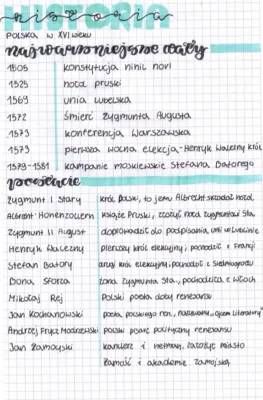 HISTORIA
historia
POLSKA W XVI WIEKU
najważniejsze daty
1505 konstytucja nihil novi
1525 hołd pruski
1569 unia lubelska
1572 śmierć Zygmunta Augusta
1573 konferencja Warszawska
1573 pierwsza wolna elekcja-Henryk Walezny król
1579-1581 kampanie moskiewskie Stefana Batorego
postacie
Zygmunt I Stary król Polski, to jemu Albrecht składał hołd,
Albrecht Hohenzollern książę Pruski, złożył hołd Zygmuntowi Sta.
Zygmunt II August doprowadził do podpisania unii w Lublinie
Henryk Walezny pierwszy król elekcyjny, pochodził z Francji
Stefan Batory drugi król elekcyjny, pochodził z Siedmiogrodu
Bona Sforza żona Zygmunta Sta., pochodziła z Włoch
Mikołaj Rej Polski poeta doby renesansu
Jan Kochanowski poeta polskiego ren., nazywany „ojcem literatury"
Andrzej Frycz Modrzewski polski pisarz polityczny renesansu
Jan Zamoyski kanclerz i hetman, założył miasto
Zamość i akademie zamojską